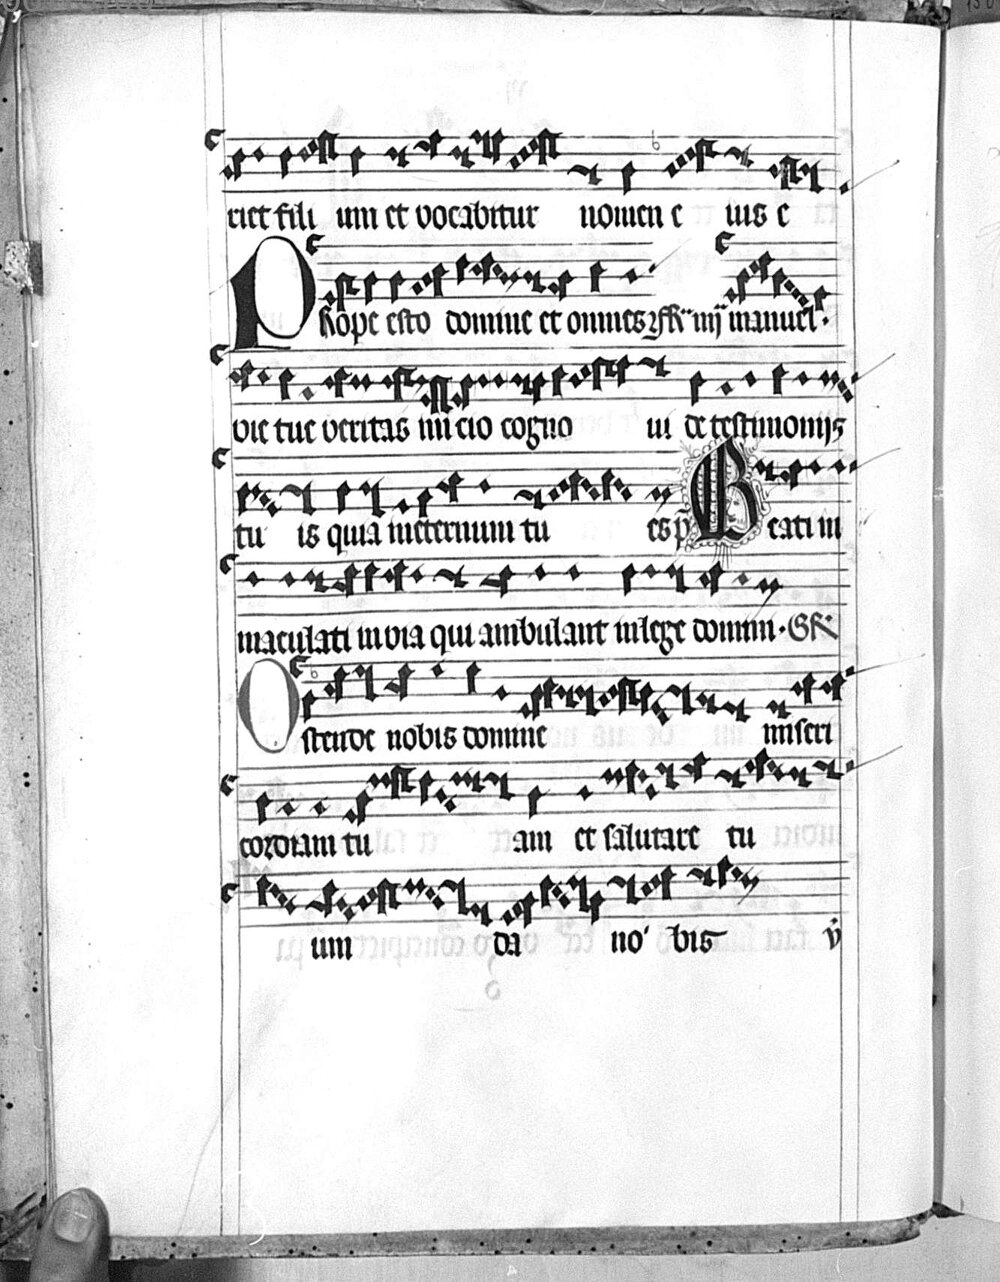 riet fili um et vocabitur nomen e ius e
Prope esto domine et omnes manuel.
vie tue veritas inicio cogno ui de testimoniis
tu is quia ineternum tu es ps Beati in
maculati in via qui ambulant inlege domini. GR
Ostende nobis domine miseri
cordiam tu am et salutare tu
um da no bis v